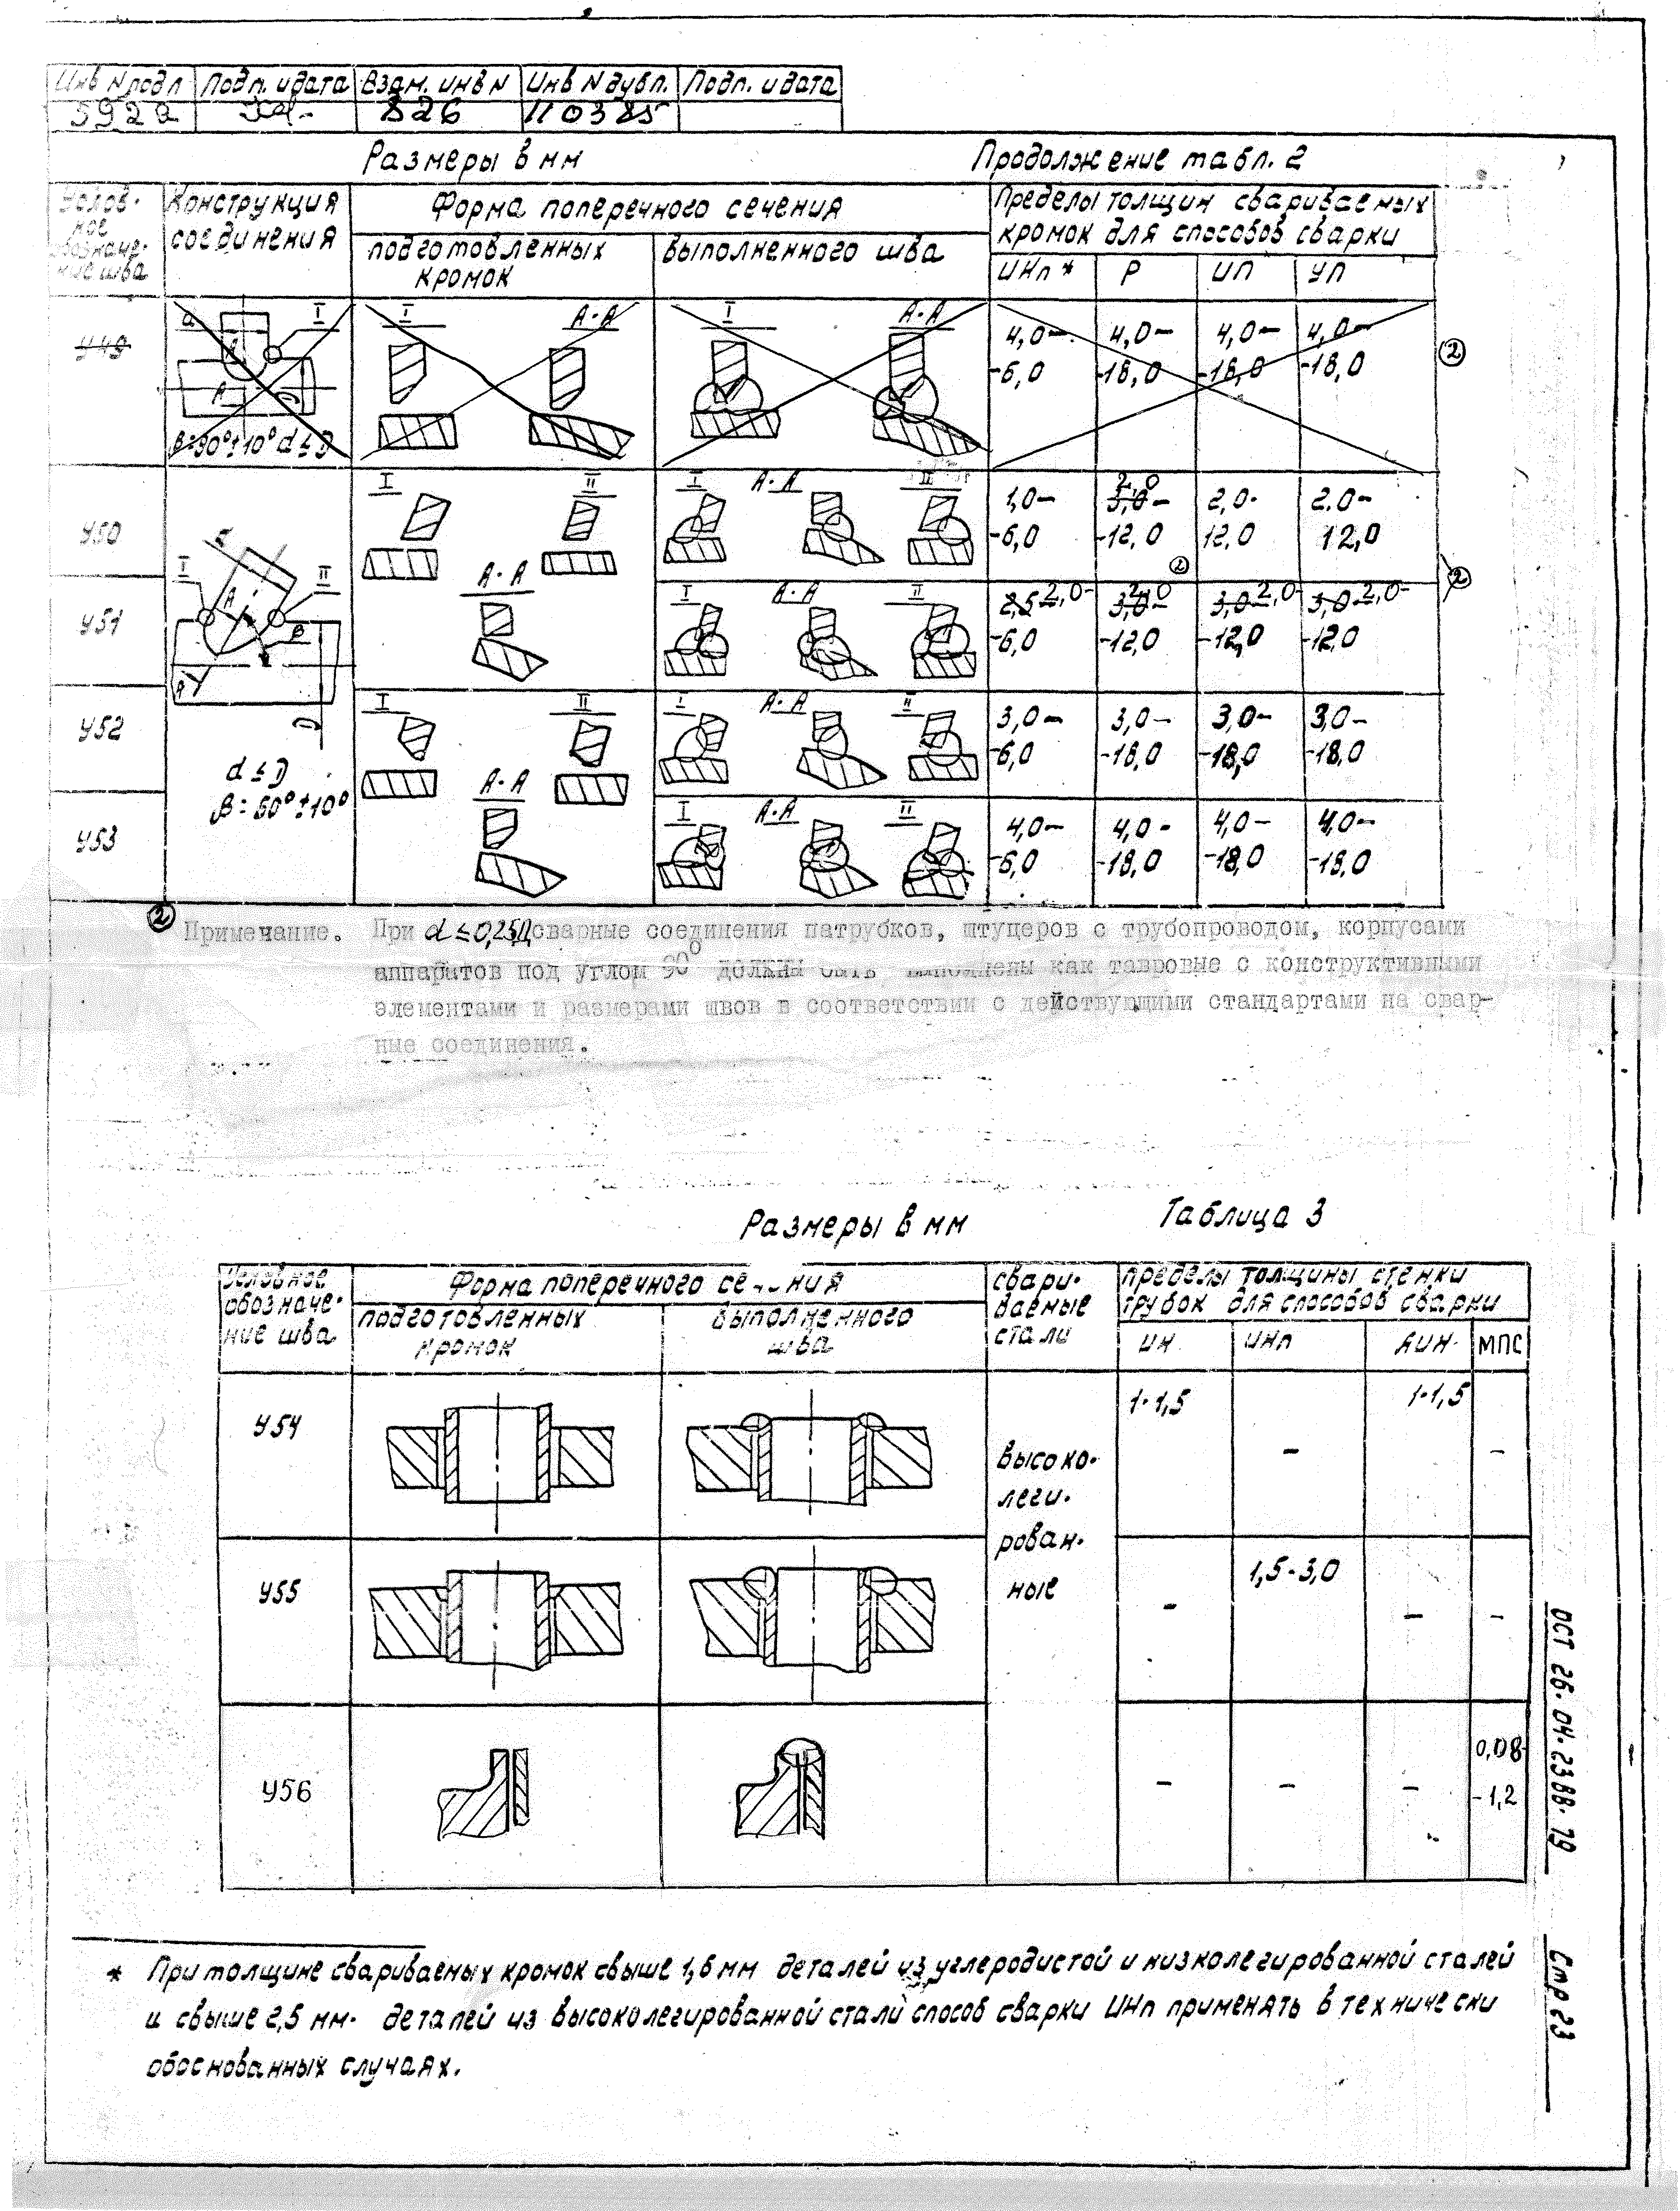 Инв N подл Подп. и дата Взам. инв N Инв N дубл. Подп. и дата
5922 826 110385
Размеры в мм Продолжение табл. 2
Услов- Конструкция Форма поперечного сечения Пределы толщин свариваемых
ное соединения кромок для способов сварки
обозначе- подготовленных выполненного шва
ние шва кромок ИНп * Р ИП УП
У49 d I I А-А I А-А 4,0- 4,0- 4,0- 4,0-
А -6,0 -18,0 -18,0 -18,0 ②
β=90°±10° d ≤ D
I II I А-А II 2,0
1,0- 3,0- 2,0- 2.0-
У50 -6,0 -12,0 12,0 12,0
I II А-А ② ②
У51 А В I А-А II 2,5 2,0- 3,0- 2,0 3,0 2,0- 3,0 2,0-
А -6,0 -12,0 -12,0 -12,0
D
I II I А-А II
У52 3,0- 3,0- 3,0- 3,0-
-6,0 -18,0 -18,0 -18,0
d ≤ D А-А
β=60°±10° I А-А II
У53 4,0- 4,0- 4,0- 4,0-
-6,0 -18,0 -18,0 -18,0
② Примечание. При d ≤ 0,25Д сварные соединения патрубков, штуцеров с трубопроводом, корпусами
аппаратов под углом 90° должны быть выполнены как тавровые с конструктивными
элементами и размерами швов в соответствии с действующими стандартами на свар-
ные соединения.
Размеры в мм Таблица 3
Условное Форма поперечного сечения свари- пределы толщины стенки
обозначе- подготовленных выполненного ваемые трубок для способов сварки
ние шва кромок шва стали ИН ИНп АИН- МПС
У54 1-1,5 - 1-1,5 -
высоко-
леги-
рован-
ные
У55 - 1,5-3,0 - -
У56 - - - 0,08-
-1,2
* При толщине свариваемых кромок свыше 1,6 мм деталей из углеродистой и низколегированной сталей
и свыше 2,5 мм. деталей из высоколегированной стали способ сварки ИНп применять в технически
обоснованных случаях.
ОСТ 26-04-2388-79
Стр 23